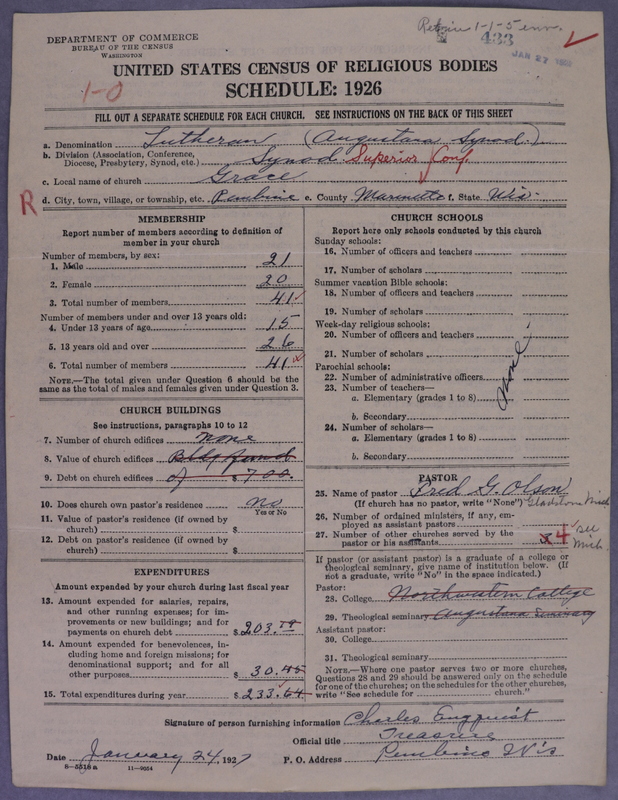 DEPARTMENT OF COMMERCE
BUREAU OF THE CENSUS
WASHINGTON
1-1-5
433
JAN 27
1-0
UNITED STATES CENSUS OF RELIGIOUS BODIES
SCHEDULE: 1926
FILL OUT A SEPARATE SCHEDULE FOR EACH CHURCH. SEE INSTRUCTIONS ON THE BACK OF THIS SHEET
a. Denomination Lutheran (Augustana Synod.)
b. Division (Association, Conference,
Diocese, Presbytery, Synod, etc.) Synod Superior Conf.
c. Local name of church Grace
R d. City, town, village, or township, etc. Pembine e. County Marinette f. State Wis.
MEMBERSHIP
Report number of members according to definition of
member in your church
Number of members, by sex:
1. Male 21
2. Female 20
3. Total number of members 41
Number of members under and over 13 years old:
4. Under 13 years of age 15
5. 13 years old and over 26
6. Total number of members 41
NOTE.—The total given under Question 6 should be
the same as the total of males and females given under Question 3.
CHURCH BUILDINGS
See instructions, paragraphs 10 to 12
7. Number of church edifices none
8. Value of church edifices Bldg fund
9. Debt on church edifices of $ 700.
10. Does church own pastor's residence? no
Yes or No
11. Value of pastor's residence (if owned by
church) $
12. Debt on pastor's residence (if owned by
church) $
EXPENDITURES
Amount expended by your church during last fiscal year
13. Amount expended for salaries, repairs,
and other running expenses; for im-
provements or new buildings; and for
payments on church debt $ 203.19
14. Amount expended for benevolences, in-
cluding home and foreign missions; for
denominational support; and for all
other purposes 30.45
15. Total expenditures during year $ 233.64
CHURCH SCHOOLS
Report here only schools conducted by this church
Sunday schools:
16. Number of officers and teachers
17. Number of scholars
Summer vacation Bible schools:
18. Number of officers and teachers
19. Number of scholars
Week-day religious schools:
20. Number of officers and teachers
21. Number of scholars
Parochial schools:
22. Number of administrative officers
23. Number of teachers—
a. Elementary (grades 1 to 8)
b. Secondary
24. Number of scholars—
a. Elementary (grades 1 to 8)
b. Secondary
None
PASTOR
25. Name of pastor Fred G. Olson
(If church has no pastor, write "None") Gladstone Mich
26. Number of ordained ministers, if any, em-
ployed as assistant pastors
27. Number of other churches served by the
pastor or his assistants 4 see Mich.
If pastor (or assistant pastor) is a graduate of a college or
theological seminary, give name of institution below. (If
not a graduate, write "No" in the space indicated.)
Pastor:
28. College Northwestern College
29. Theological seminary Augustana Seminary
Assistant pastor:
30. College
31. Theological seminary
NOTE.—Where one pastor serves two or more churches,
Questions 28 and 29 should be answered only on the schedule
for one of the churches; on the schedules for the other churches,
write "See schedule for church."
Signature of person furnishing information Charles Engquist
Official title Treasure
Date January 24, 1927 P. O. Address Pembine Wis
8—5518a 11—9054